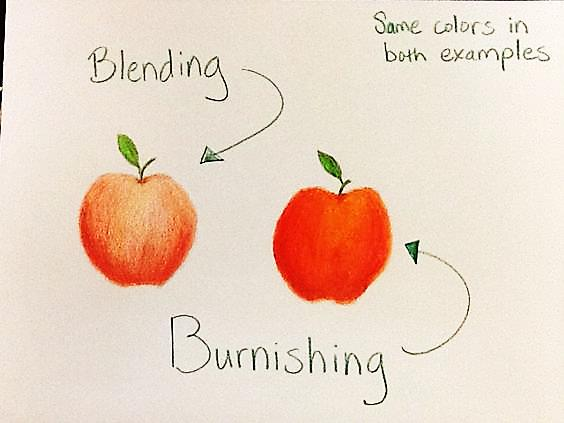 Same colors in
both examples
Blending
Burnishing